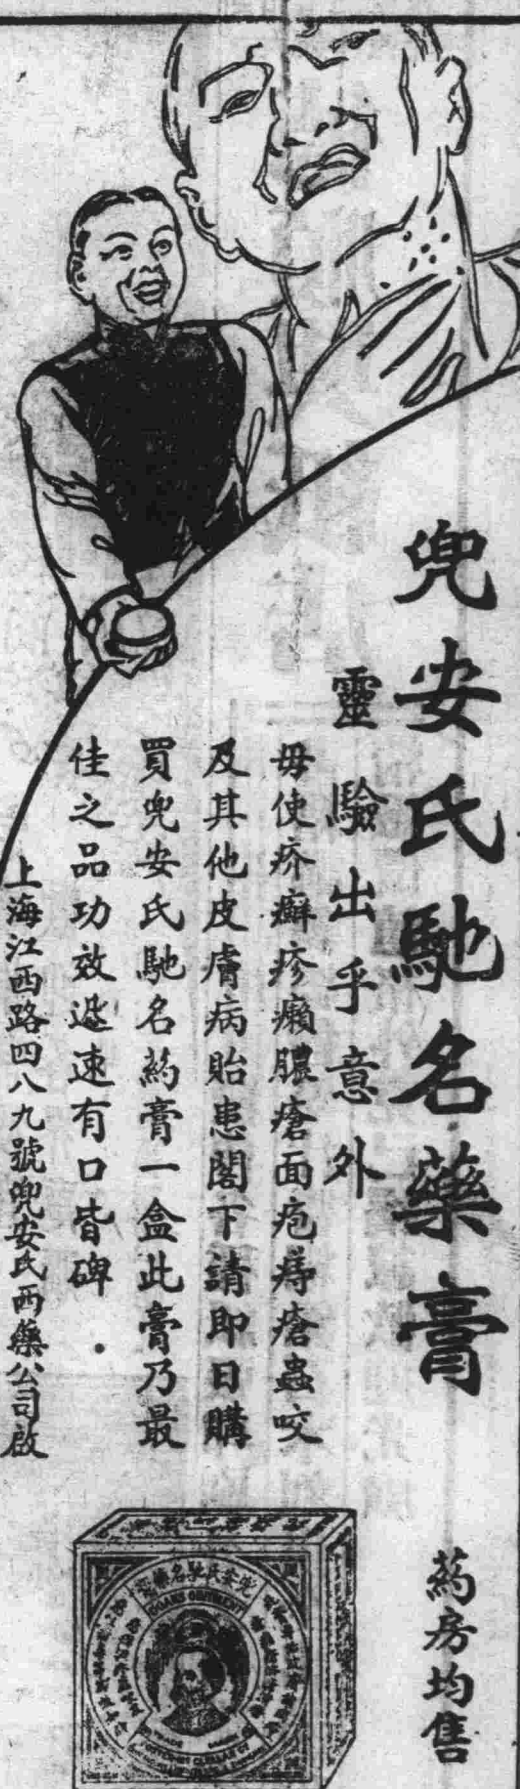 兜安氏馳名藥膏
藥房均售
靈驗出乎意外
毋使疥癬疹癩膿瘡面疱痔瘡蟲咬
及其他皮膚病貽患閣下請即日購
買兜安氏馳名葯膏一盒此膏乃最
佳之品功效迅速有口皆碑．
上海江西路四八九號兜安氏西藥公司啟
兜安氏馳名藥膏
DOANS OINTMENT